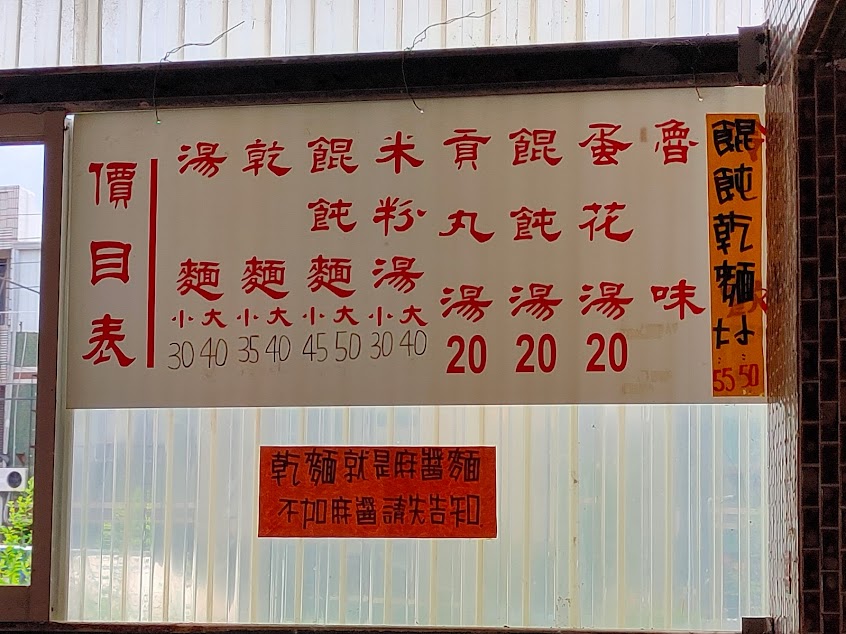 價目表
湯麵
小 大
30 40
乾麵
小 大
35 40
餛飩麵
小 大
45 50
米粉湯
小 大
30 40
貢丸湯
20
餛飩湯
20
蛋花湯
20
魯味
餛飩乾麵
大 小
55 50
乾麵就是麻醬麵
不加麻醬請先告知